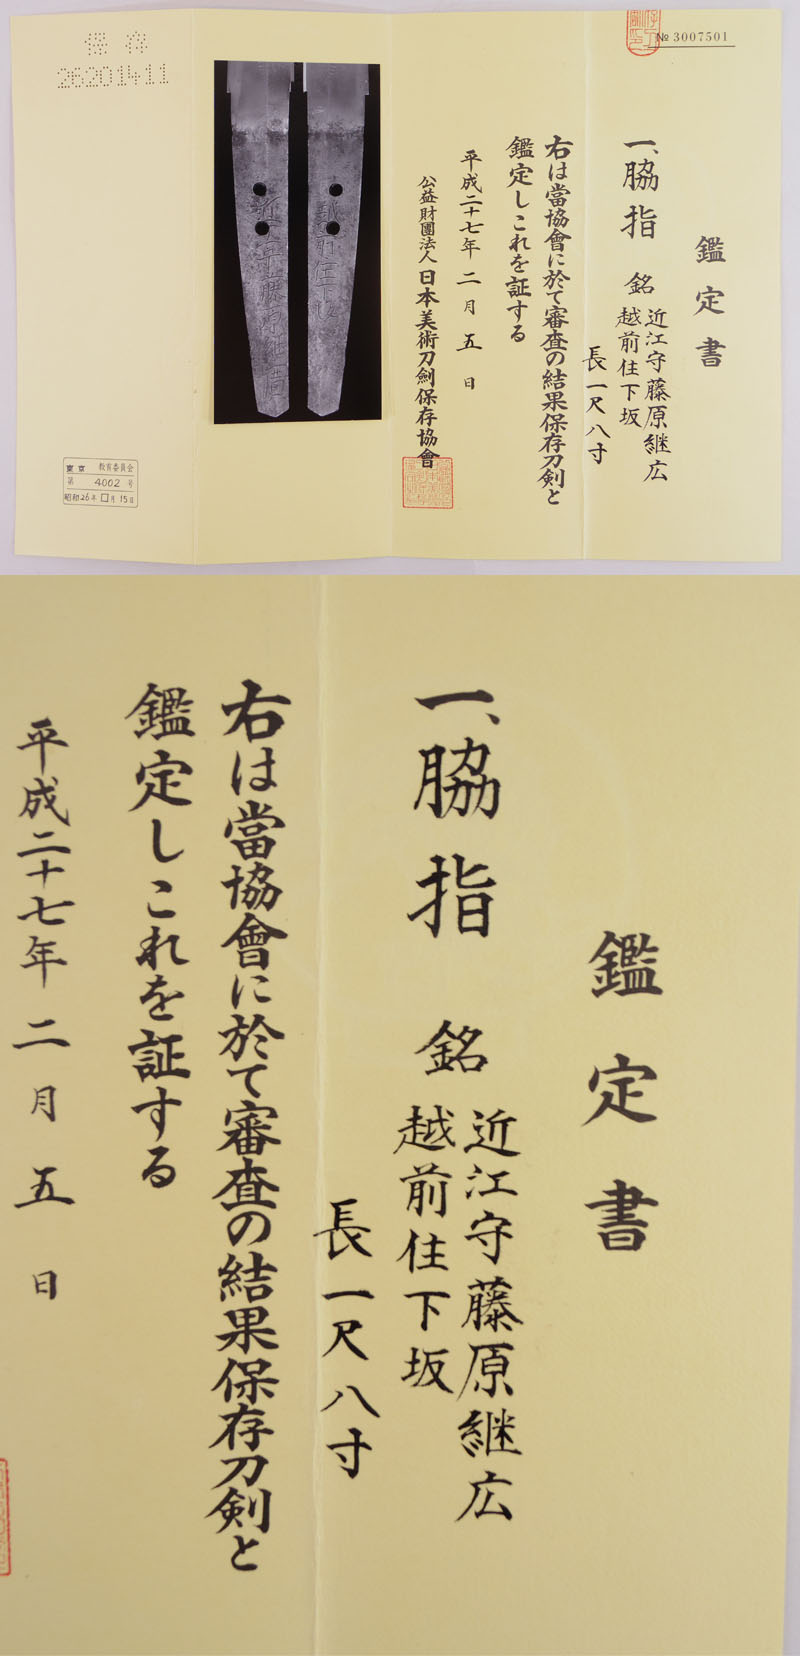 № 3007501
鑑定書
一、脇指 銘 近江守藤原継広
越前住下坂
長一尺八寸
右は當協會に於て審査の結果保存刀剣と
鑑定しこれを証する
平成二十七年 二月 五日
公益財團法人 日本美術刀劍保存協會
保存
26201411
東京 教育委員会
第 4002 号
昭和26年 月15日
鑑定書
一、脇指 銘 近江守藤原継広
越前住下坂
長一尺八寸
右は當協會に於て審査の結果保存刀剣と
鑑定しこれを証する
平成二十七年 二月 五日